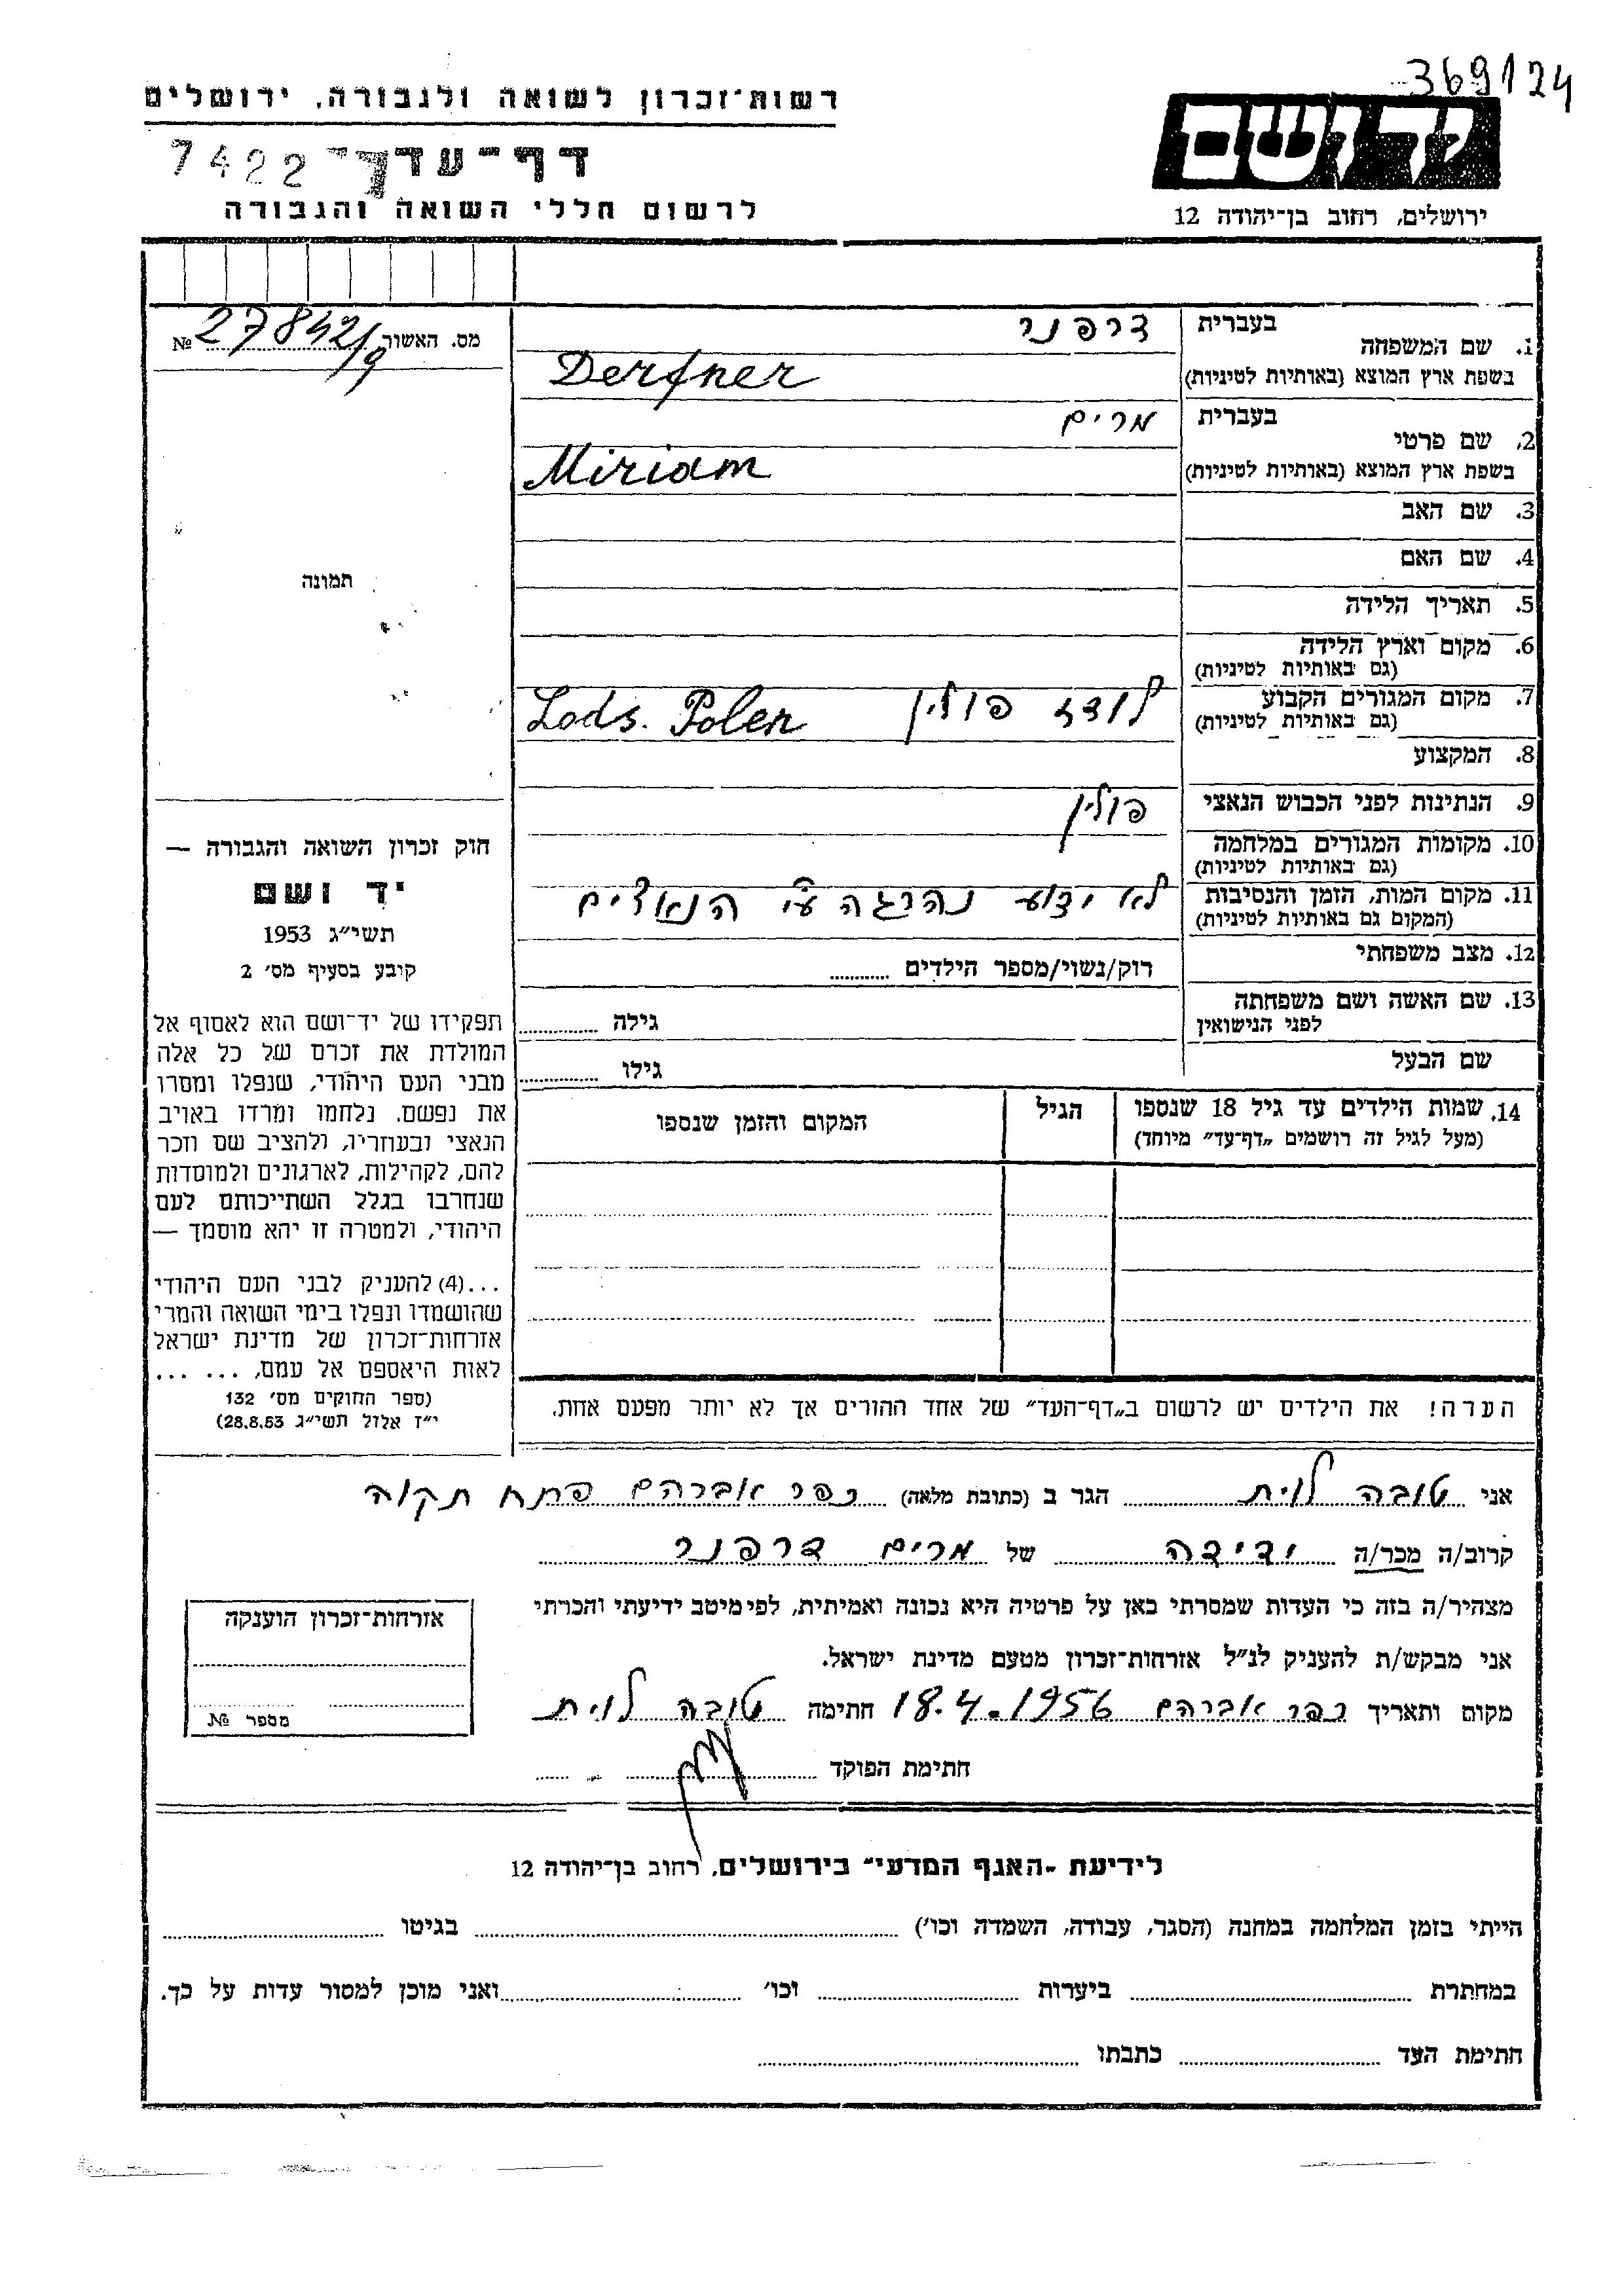 369124
רשות־זכרון לשואה ולגבורה, ירושלים
יד ושם
דף־עד
7422
לרשום חללי השואה והגבורה
ירושלים, רחוב בן־יהודה 12
בעברית דרפנר
1. שם המשפחה
בשפת ארץ המוצא (באותיות לטיניות) Derfner
מס. האשור 27842/9 №
בעברית מרים
2. שם פרטי
בשפת ארץ המוצא (באותיות לטיניות) Miriam
3. שם האב
4. שם האם
5. תאריך הלידה
6. מקום וארץ הלידה
(גם באותיות לטיניות)
7. מקום המגורים הקבוע לודז פולין Lods. Polen
(גם באותיות לטיניות)
8. המקצוע
9. הנתינות לפני הכבוש הנאצי פולין
10. מקומות המגורים במלחמה
(גם באותיות לטיניות)
11. מקום המות, הזמן והנסיבות לא ידוע נהרגה ע״י הנאצים
(המקום גם באותיות לטיניות)
12. מצב משפחתי רוק/נשוי/מספר הילדים
13. שם האשה ושם משפחתה
לפני הנישואין גילה
שם הבעל גילו
14. שמות הילדים עד גיל 18 שנספו הגיל המקום והזמן שנספו
(מעל לגיל זה רושמים „דף־עד״ מיוחד)
תמונה
חוק זכרון השואה והגבורה —
יד ושם
תשי״ג 1953
קובע בסעיף מס׳ 2
תפקידו של יד־ושם הוא לאסוף אל
המולדת את זכרם של כל אלה
מבני העם היהודי, שנפלו ומסרו
את נפשם, נלחמו ומרדו באויב
הנאצי ובעוזריו, ולהציב שם וזכר
להם, לקהילות, לארגונים ולמוסדות
שנחרבו בגלל השתייכותם לעם
היהודי, ולמטרה זו יהא מוסמך —
...(4) להעניק לבני העם היהודי
שהושמדו ונפלו בימי השואה והמרי
אזרחות־זכרון של מדינת ישראל
לאות היאספם אל עמם, ... ...
(ספר החוקים מס׳ 132
י״ז אלול תשי״ג 28.8.53)
הערה! את הילדים יש לרשום ב„דף־העד״ של אחד ההורים אך לא יותר מפעם אחת.
אני טובה לוית הגר ב (כתובת מלאה) כפר אברהם פתח תקוה
קרוב/ה מכר/ה ידידה של מרים דרפנר
מצהיר/ה בזה כי העדות שמסרתי כאן על פרטיה היא נכונה ואמיתית, לפי מיטב ידיעתי והכרתי
אני מבקש/ת להעניק לנ״ל אזרחות־זכרון מטעם מדינת ישראל.
מקום ותאריך כפר אברהם 18.4.1956 חתימה טובה לוית
חתימת הפוקד
אזרחות־זכרון הוענקה
מספר №
לידיעת ״האגף המדעי״ בירושלים, רחוב בן־יהודה 12
הייתי בזמן המלחמה במחנה (הסגר, עבודה, השמדה וכו׳) בגיטו
במחתרת ביערות וכו׳ ואני מוכן למסור עדות על כך.
חתימת העד כתבתו